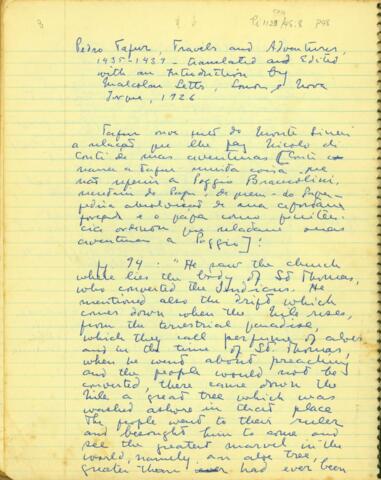 3
Pi 112 AS:8 P98
Pedro Tafur, Travels and Adventures,
1435-1439 - translated and Edited
with an Introduction by
Malcolm Letts, London e Nova
Iorque, 1926
Tafur ouve junto do Monte Sinai
a relação que lhe faz Nicolo di
Conti de suas aventuras [Conti
narra a Tafur muita coisa que
não referiu a Poggio Bracciolini,
secretario do Papa, de quem - do Papa
pedira absolvição de sua
forçada e o papa como peniten-
cia ordenou que relatasse suas
aventuras a Poggio]:
p. 94: "He saw the church
where lies the body of St Thomas,
who converted the Indians. He
mentioned also the drift which
comes down when the Nile rises,
from the terrestrial paradise,
which they call perfume of aloes
and in the time of St Thomas,
when he went about preaching
and the people would not be
converted, there came down the
Nile a great tree which was
washed ashore in that place
The people went to their ruler
and besought him to come and
see the greatest marvel in the
world, namely, an aloe tree,
greater than had ever been